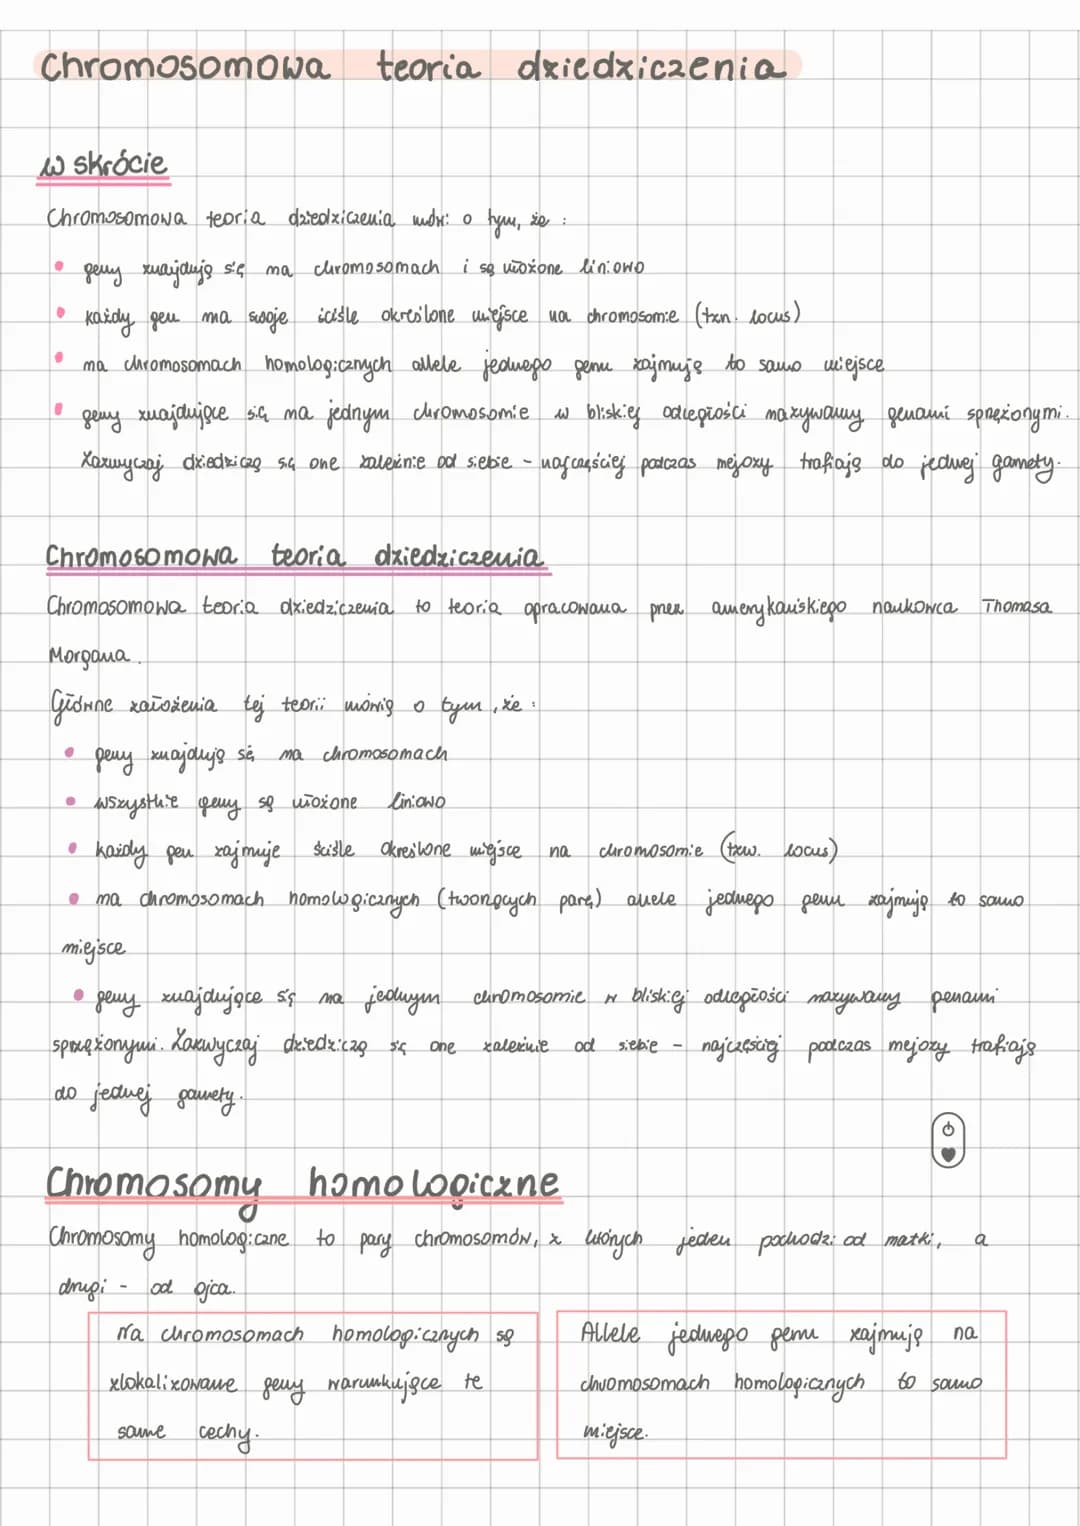 Chromosomowa teoria dziedziczenia
w skrócie
Chromosomowa teoria dziedziczenia mówi o tym, że :
geny znajdują się na chromosomach i są ułożone liniowo
każdy gen ma swoje ściśle określone miejsce na chromosomie (tzn. locus)
na chromosomach homologicznych allele jednego genu zajmują to samo miejsce
geny znajdujące się na jednym chromosomie w bliskiej odległości nazywamy genami sprzężonymi.
Zazwyczaj dziedziczą się one zależnie od siebie - najczęściej podczas mejozy trafiają do jednej gamety.
Chromosomowa teoria dziedziczenia
Chromosomowa teoria dziedziczenia to teoria opracowana przez amerykańskiego naukowca Thomasa
Morgana.
Główne założenia tej teorii mówią o tym, że :
geny znajdują się na chromosomach
wszystkie geny są ułożone liniowo
każdy gen zajmuje ściśle określone miejsce na chromosomie (tzw. locus)
na chromosomach homologicznych (tworzących parę) allele jednego genu zajmują to samo
miejsce
geny znajdujące się na jednym chromosomie w bliskiej odległości nazywamy genami
sprzężonymi. Zazwyczaj dziedziczą się one zależnie od siebie - najczęściej podczas mejozy trafiają
do jednej gamety.
Chromosomy homologiczne
Chromosomy homologiczne to pary chromosomów, z których jeden pochodzi od matki, a
drugi - od ojca.
Na chromosomach homologicznych są
zlokalizowane geny warunkujące te
same cechy.
Allele jednego genu zajmują na
chromosomach homologicznych to samo
miejsce.